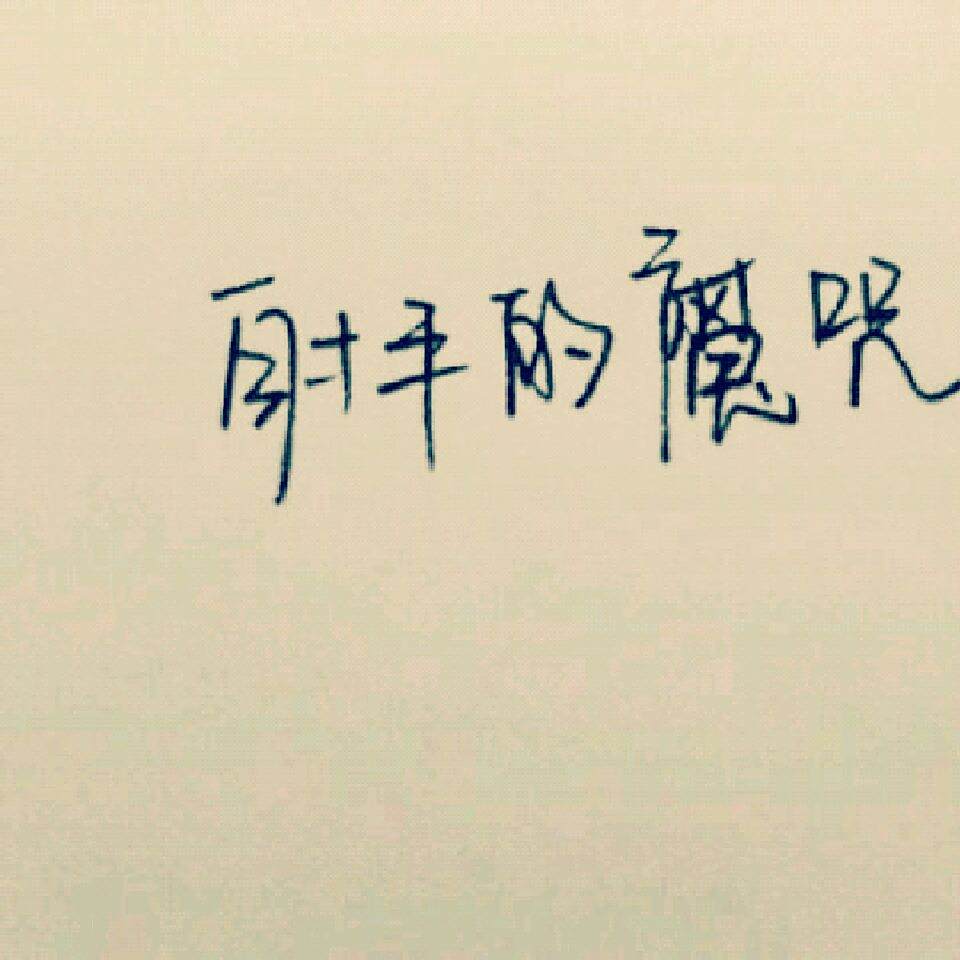 射手的魔咒